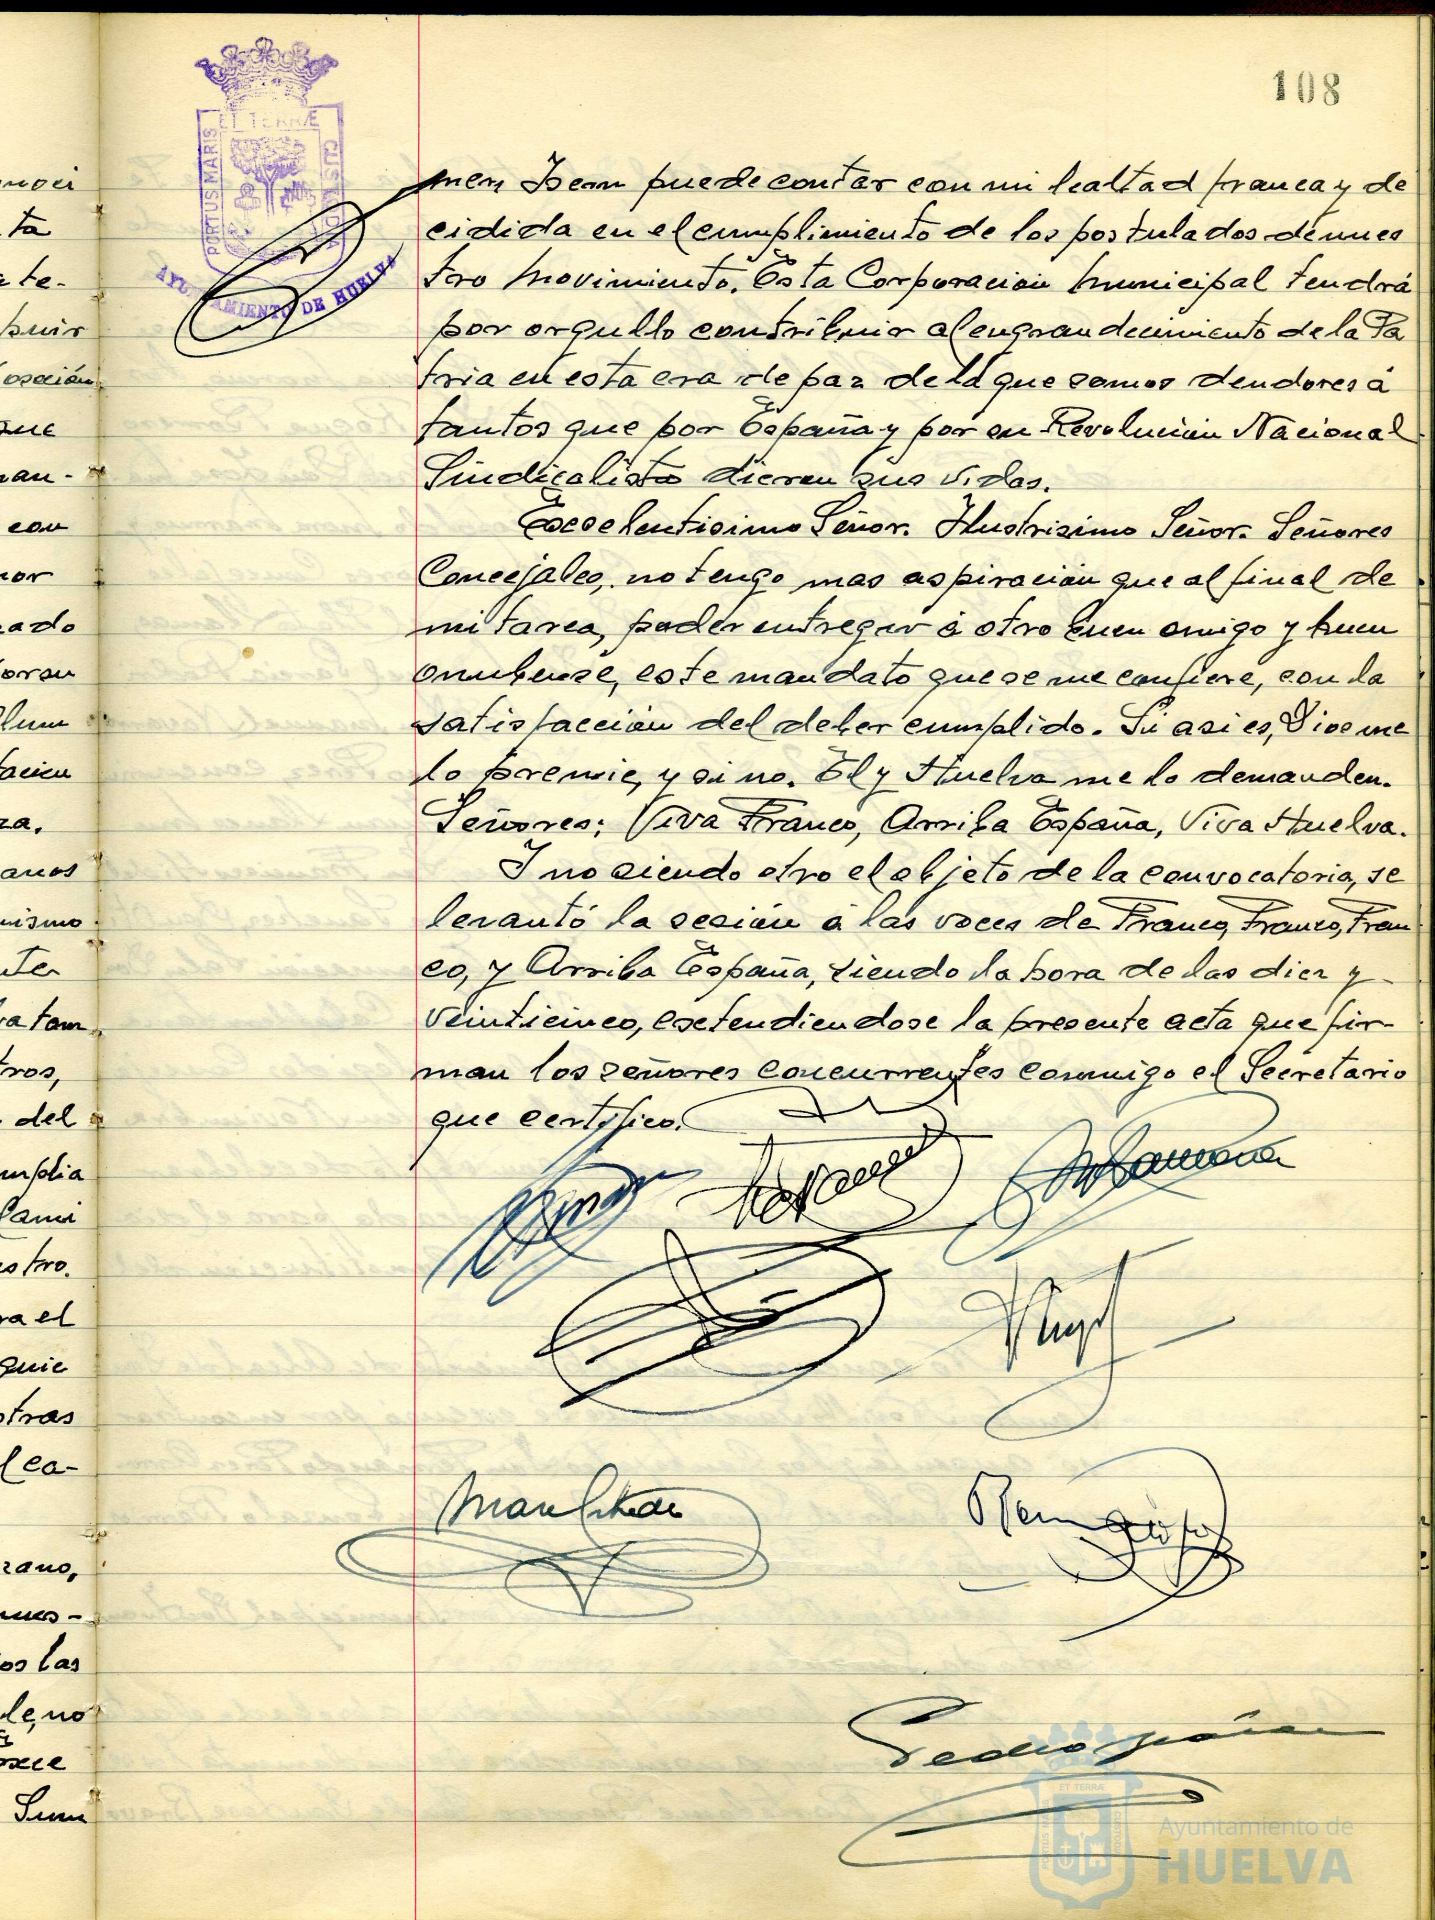 108
PORTUS MARIS
ET TERRÆ
CUSTODIA
AYUNTAMIENTO DE HUELVA
men Isern puede contar con mi lealtad franca y de
cidida en el cumplimiento de los postulados de nues
tro Movimiento. Esta Corporación Municipal tendrá
por orgullo contribuir al engrandecimiento de la Pa
tria en esta era de paz de la que somos deudores á
tantos que por España y por su Revolución Nacional
Sindicalista dieron sus vidas.
Escelentisimo Señor. Ilustrisimo Señor. Señores
Concejales, no tengo mas aspiración que al final de
mi tarea, poder entregar á otro buen amigo y buen
onubense, este mandato que se me confiere, con la
satisfacción del deber cumplido. Si asi es, Dios me
lo premie, y si no, El y Huelva me lo demanden.
Señores; Viva Franco, Arriba España, Viva Huelva.
Y no siendo otro el objeto de la convocatoria, se
levantó la sesión á las voces de Franco, Franco, Fran
co, y Arriba España, siendo la hora de las diez y
veinticinco, estendiendose la presente acta que fir-
man los señores concurrentes conmigo el Secretario
que certifico.
Pedro
ta
te-
buir
que
man-
con
ado
ra.
anos
mismo
tros,
del
ra el
quie
stras
zano,
os las
le, no
ET TERRÆ
Ayuntamiento de
HUELVA